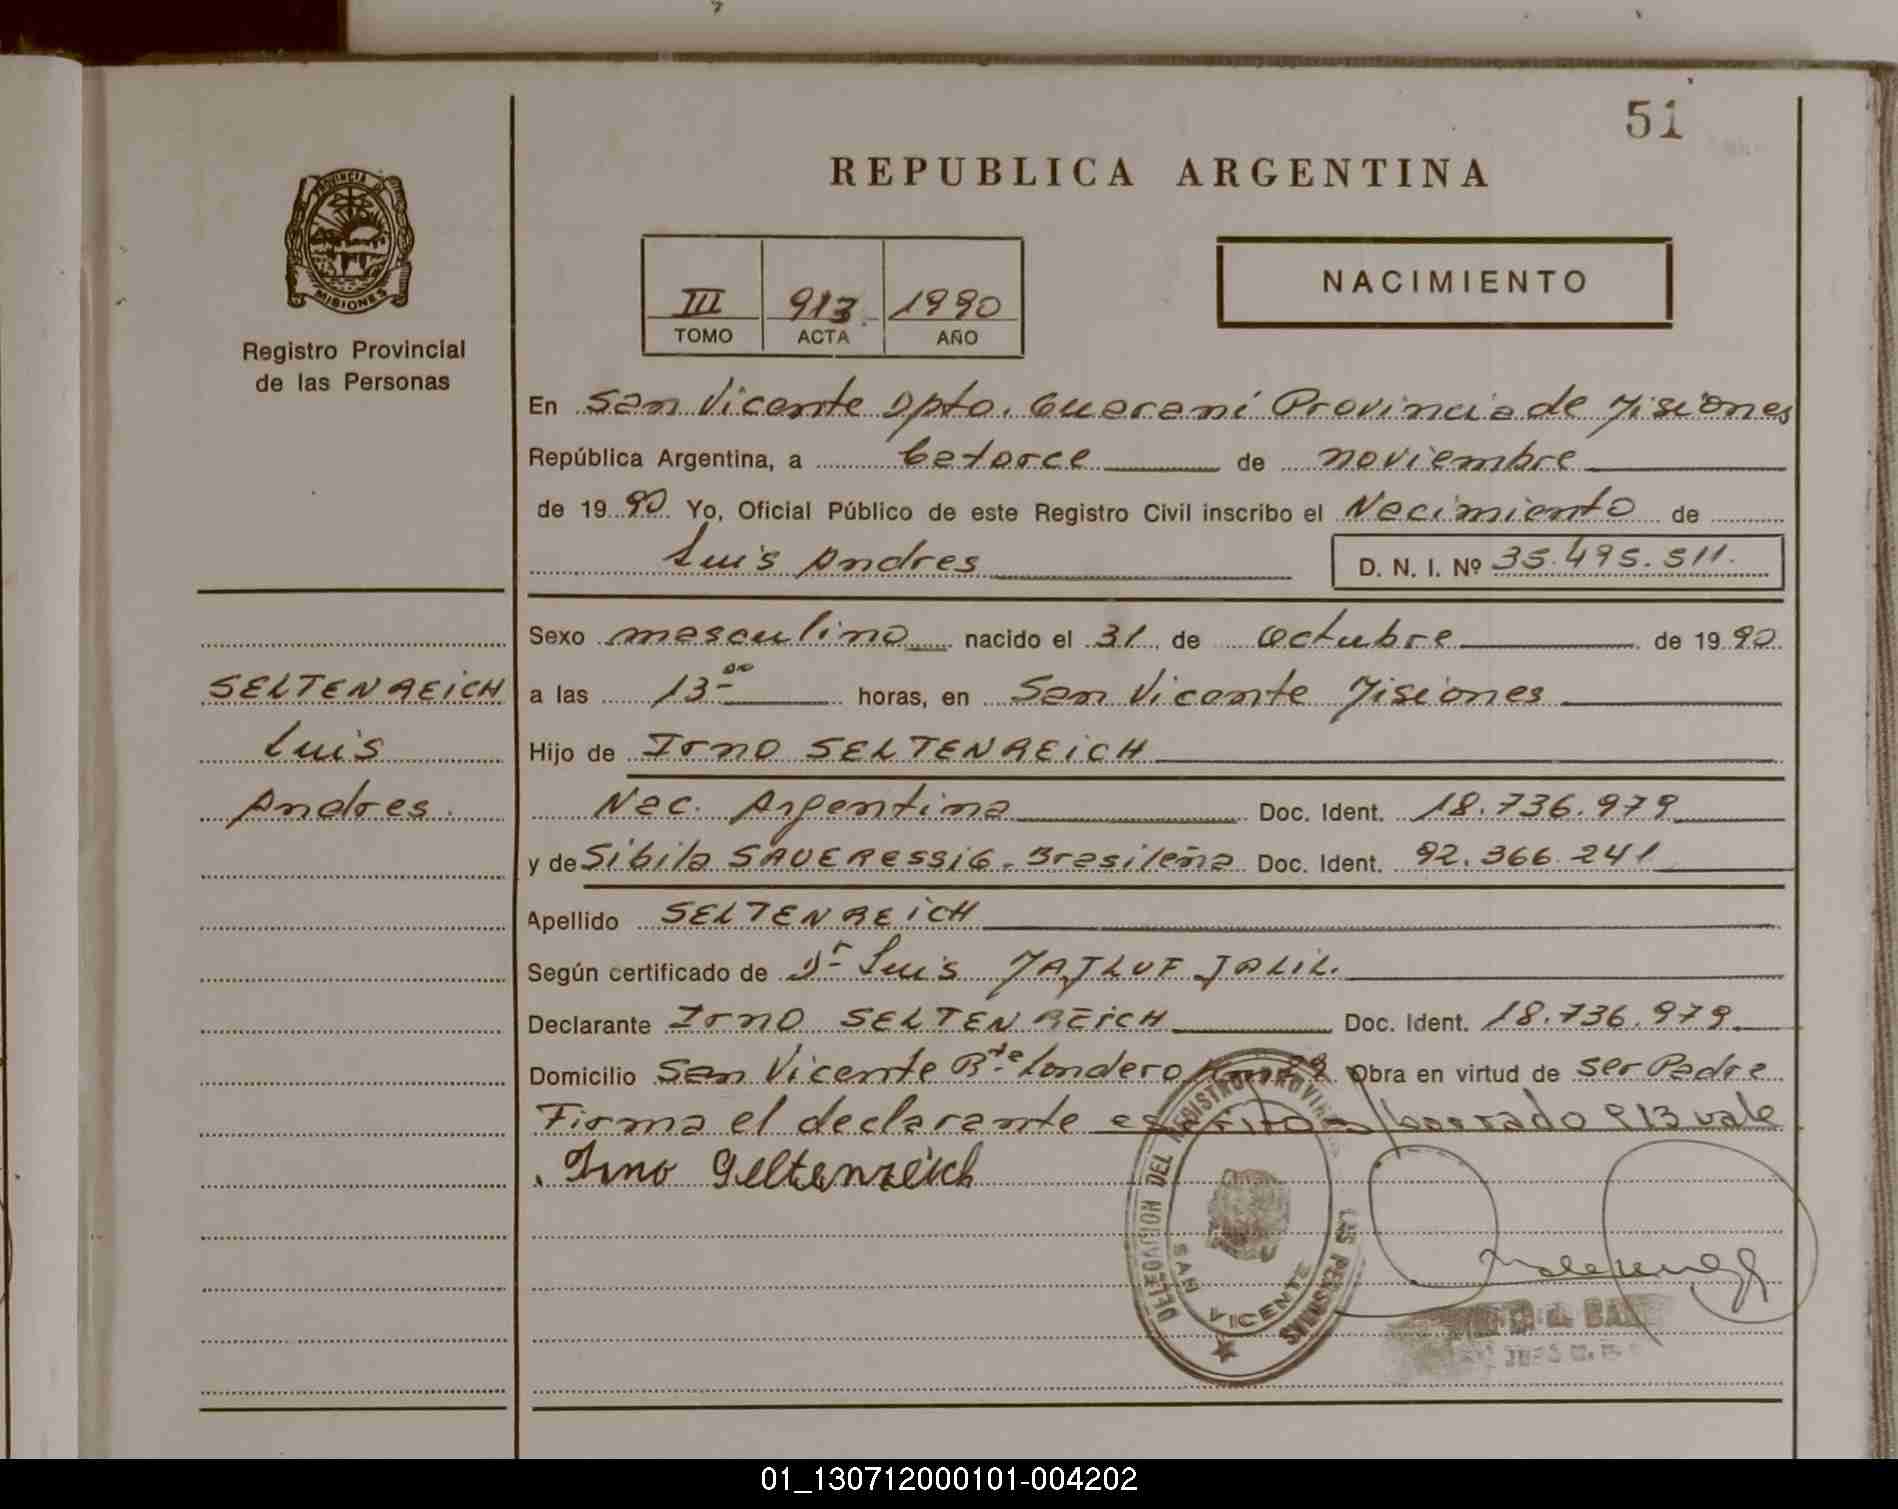 51
REPUBLICA ARGENTINA
PROVINCIA DE
MISIONES
Registro Provincial
de las Personas
III 913 1990
TOMO ACTA AÑO
NACIMIENTO
En San Vicente Dpto. Guaraní Provincia de Misiones
República Argentina, a Catorce de noviembre
de 1990 Yo, Oficial Público de este Registro Civil inscribo el Nacimiento de
Luis Andres D. N. I. Nº 35.495.511.
Sexo masculino nacido el 31 de Octubre de 1990
SELTENREICH
Luis
Andres.
a las 13 00 horas, en San Vicente Misiones
Hijo de Irno SELTENREICH
Nac. Argentina Doc. Ident. 18.736.979
y de Sibila SAUERESSIG. Brasileña Doc. Ident. 92.366.241
Apellido SELTENREICH
Según certificado de Dr Luis MAJLUF JALIL.
Declarante Irno SELTENREICH Doc. Ident. 18.736.979
Domicilio San Vicente Bte Londero Km 29 Obra en virtud de ser Padre
Firma el declarante escrito s/borrado 913 vale
Irno Seltenreich
DELEGACION DEL REGISTRO PROVINCIAL LAS PERSONAS
SAN VICENTE
01_130712000101-004202